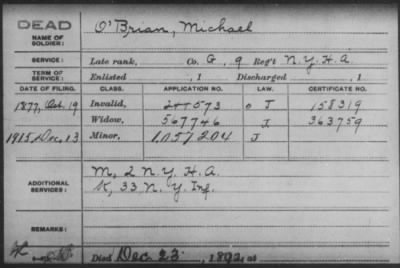 DEAD
NAME OF
SOLDIER:
O'Brian, Michael
SERVICE:
Late rank, Co. G, 9 Reg't N.Y.H.A.
TERM OF
SERVICE:
Enlisted , 1 Discharged , 1
DATE OF FILING. CLASS. APPLICATION NO. LAW. CERTIFICATE NO.
1877, Oct. 19 Invalid, 573 J 158319
Widow, 567746 J. 363759
1915 Dec, 13 Minor, 1,057204 J
ADDITIONAL
SERVICES:
M, 2 N.Y.H.A.
K, 33 N.Y. Inf.
REMARKS:
Died Dec. 23, 1892, at